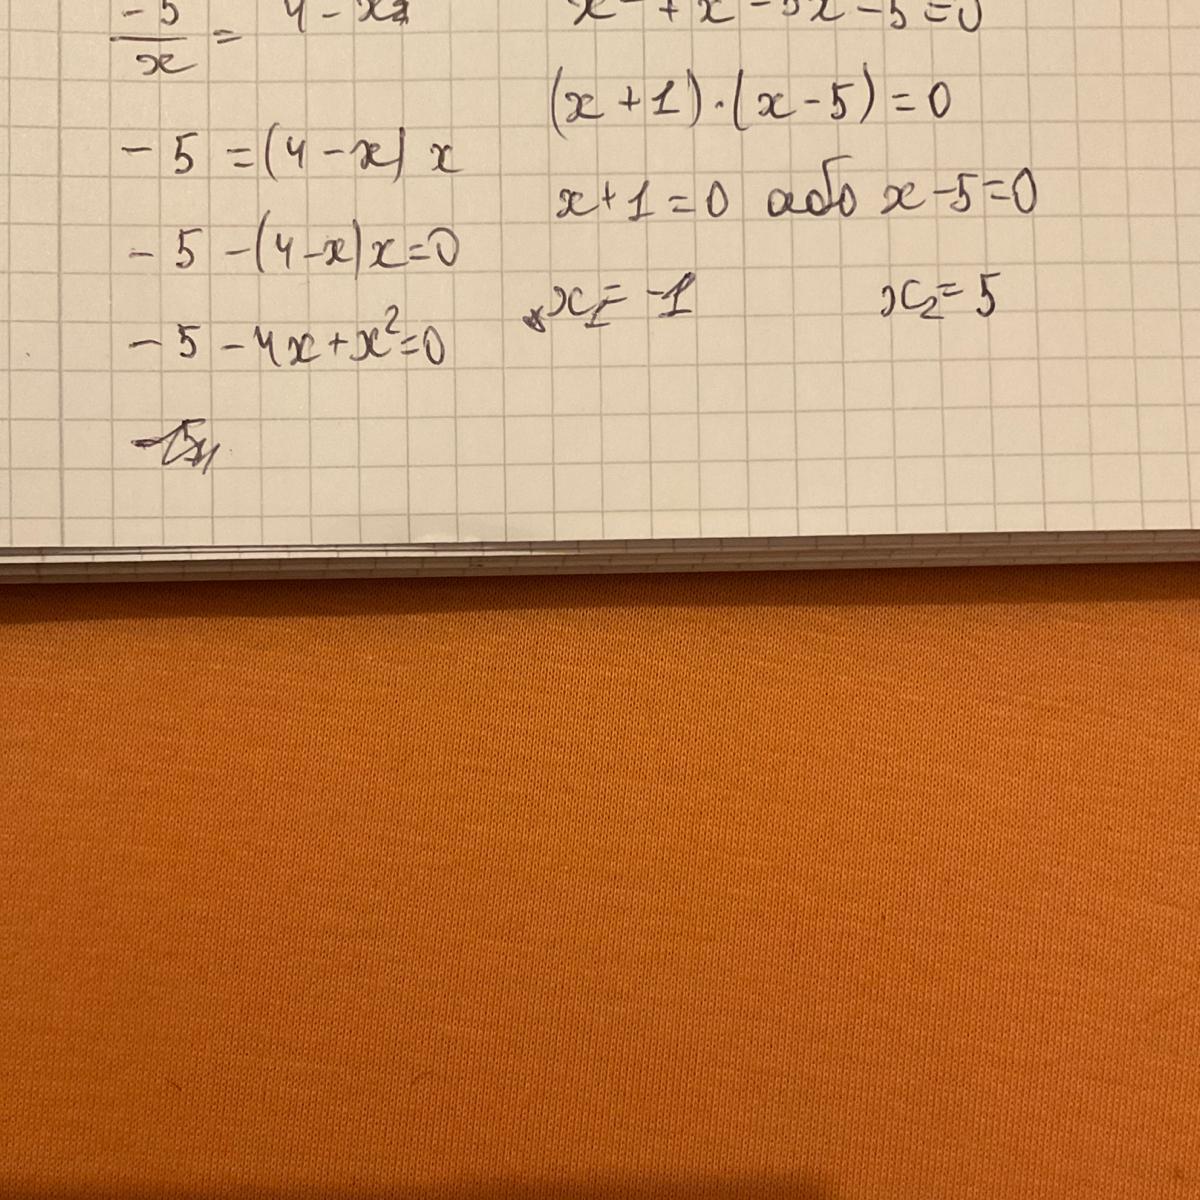 -5/x = 4-x
-5 = (4-x) x
-5 -(4-x)x=0
-5-4x+x²=0
x² + x - 5x - 5 = 0
(x+1)·(x-5)=0
x+1=0 або x-5=0
x₁=-1 x₂=5